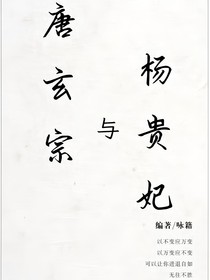 唐玄宗
与
杨贵妃
编著/咏籍
以不变应万变
以万变应不变
可以让你进退自如
无往不胜